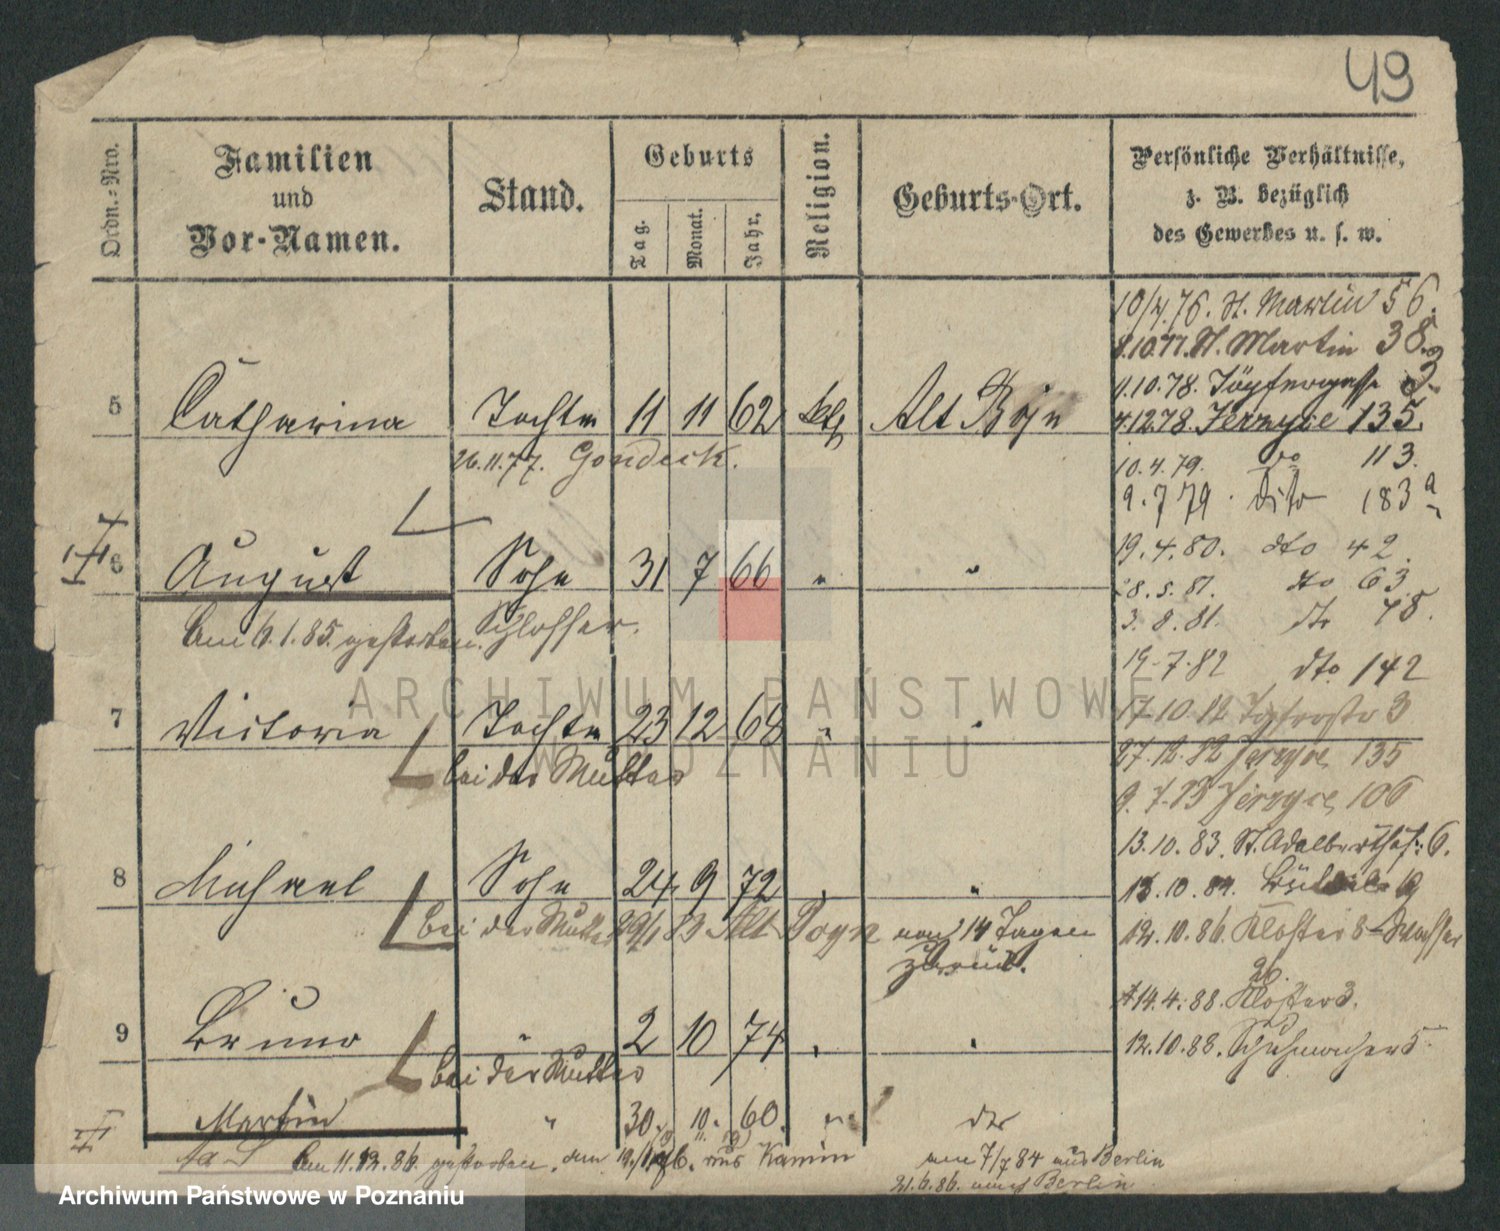 49
Ordn.-Nro.
Familien
und
Vor-Namen.
Stand.
Geburts
Tag.
Monat.
Jahr.
Religion.
Geburts-Ort.
Persönliche Verhältnisse,
z. B. bezüglich
des Gewerbes u. s. w.
10/4.76. St. Martin 56.
8.10.77. St. Martin 38.
1.10.78. Töpfergasse 3.
5 Catharina Tochter 11 11 62 kth Alt Bojn
4.12.78. Jerzyce 135.
26.11.77. Gondeck.
10.4.79. do 113.
9.7.79. dito 183a
6 August Sohn 31 7 66 " "
19.4.80. dto 42.
28.5.81. dto 63.
Am 6.1.85. gestorben. Schlosser.
3.8.81. dto 78.
19.7.82 dto 142
7 Victoria Tochter 23 12 68 " "
17.10.82 3
bei der Mutter
27.12.82 Jerzyce 135
9.7.83 Jerzyce 106
13.10.83. St. Adalbertstr. 6.
8 Michael Sohn 24 9 72 " "
13.10.84. 19
bei der Mutter 29/1 83 Alt Bojn von 14 Tagen
zurück.
12.10.86. Kloster 8
26.
14.4.88. Kloster 3.
9 Bruno " 2 10 74 " "
12.10.88. Schuhmacher 5
bei der Mutter
Martin " 30. 10. 60. " dto
Am 11.12.86. gestorben. aus Kamin
am 7/7 84 aus Berlin
21.6.86. nach Berlin
ARCHIWUM PAŃSTWOWE
W POZNANIU
Archiwum Państwowe w Poznaniu